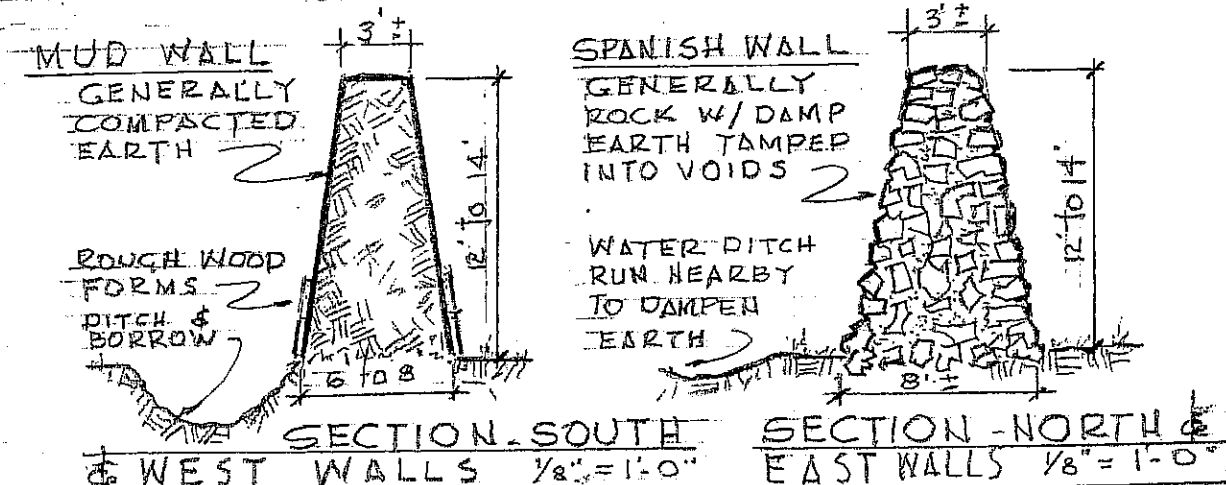 MUD WALL
GENERALLY
COMPACTED
EARTH
3' ±
12' TO 14'
ROUGH WOOD
FORMS
DITCH &
BORROW
6 TO 8
SECTION - SOUTH
& WEST WALLS 1/8" = 1'-0"
SPANISH WALL
GENERALLY
ROCK W/ DAMP
EARTH TAMPED
INTO VOIDS
3' ±
12' TO 14'
WATER DITCH
RUN NEARBY
TO DAMPEN
EARTH
8' ±
SECTION - NORTH &
EAST WALLS 1/8" = 1'-0"